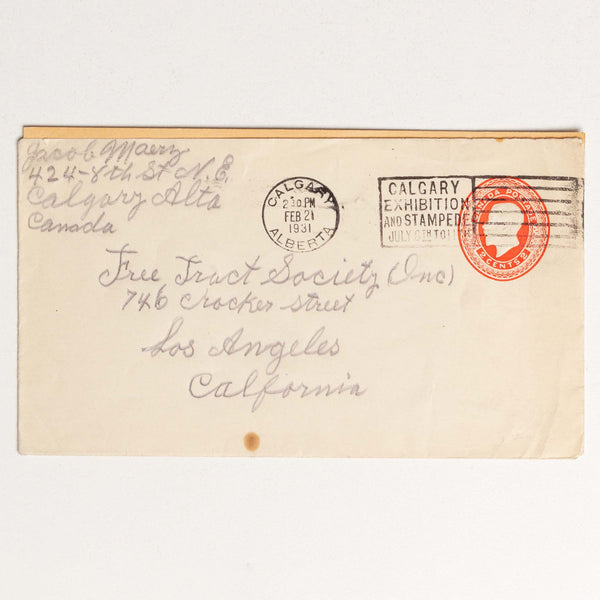 Jacob Maerz
424-8th St N.E.
Calgary Alta
Canada
CALGARY
2 30 PM
FEB 21
1931
ALBERTA
CALGARY
EXHIBITION
AND STAMPEDE
JULY TO
POSTAGE
2 CENTS 2
Free Tract Society (Inc)
746 Crocker street
Los Angeles
California